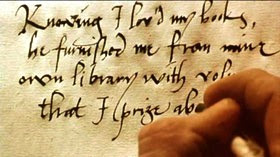 Knowing I lov'd my books,
he furnished me from mine
own library with vol
that I prize abo